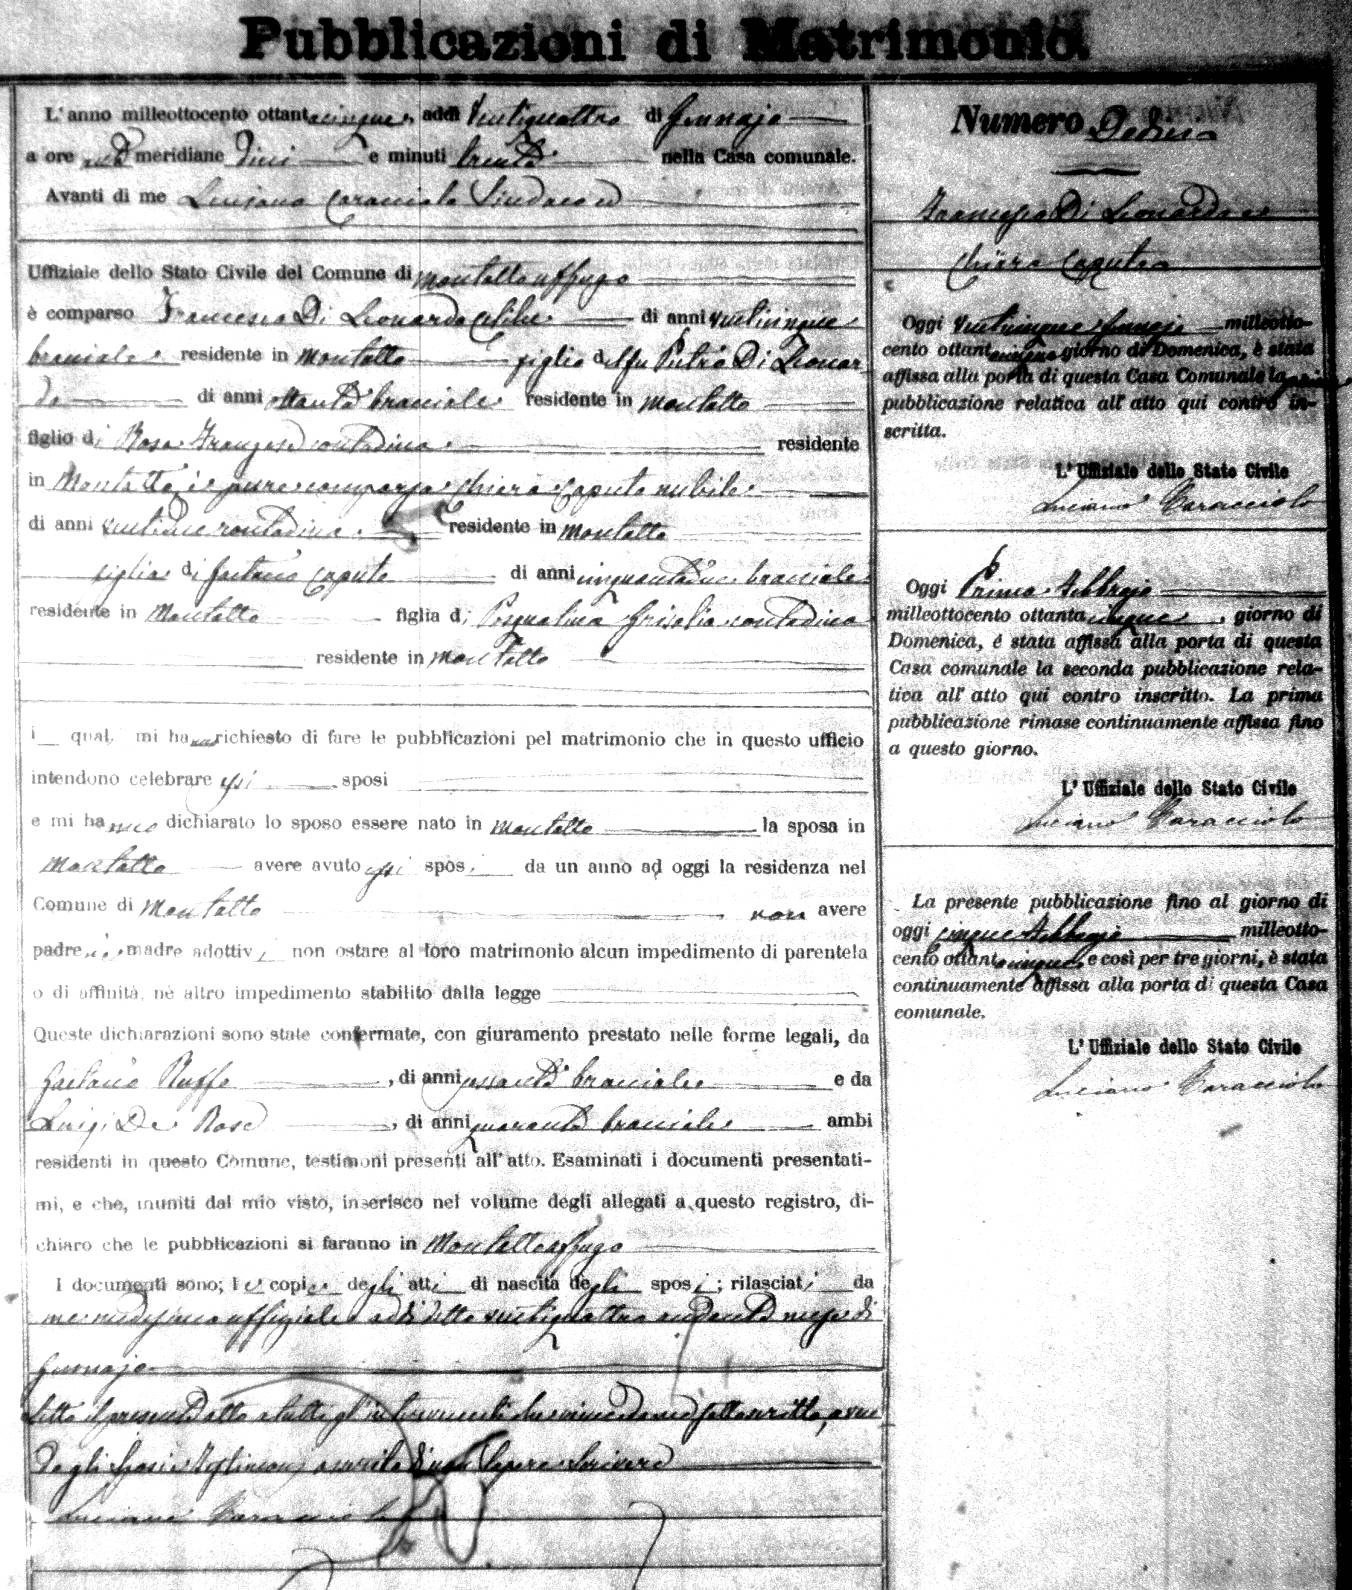 Pubblicazioni di Matrimonio.
L'anno milleottocento ottantacinque, addì Ventiquattro di Gennajo
a ore anti meridiane dieci e minuti trenta nella Casa comunale.
Avanti di me Luciano Caracciolo Sindaco
Uffiziale dello Stato Civile del Comune di Montalto uffugo
è comparso Francesco Di Leonardo celibe di anni venticinque
bracciale residente in Montalto figlio del fu Pietro Di Leonar
do di anni ottanta bracciale residente in Montalto
figlio di Rosa Franzese contadina residente
in Montalto, è pure comparsa Chiara Caputo nubile
di anni ventidue contadina residente in Montalto
figlia di Gaetano Caputo di anni cinquantadue bracciale
residente in Montalto figlia di Pasqualina Grisolia contadina
residente in Montalto
i quali mi hanno richiesto di fare le pubblicazioni pel matrimonio che in questo ufficio
intendono celebrare essi sposi
e mi hanno dichiarato lo sposo essere nato in Montalto la sposa in
Montalto avere avuto essi sposi da un anno ad oggi la residenza nel
Comune di Montalto non avere
padre nè madre adottivi non ostare al loro matrimonio alcun impedimento di parentela
o di affinità, nè altro impedimento stabilito dalla legge
Queste dichiarazioni sono state confermate, con giuramento prestato nelle forme legali, da
Gaetano Ruffo, di anni sessanta bracciale e da
Luigi De Rose, di anni quaranta bracciale ambi
residenti in questo Comune, testimoni presenti all'atto. Esaminati i documenti presentati-
mi, e che, muniti dal mio visto, inserisco nel volume degli allegati a questo registro, di-
chiaro che le pubblicazioni si faranno in Montalto uffugo
I documenti sono; le copie degli atti di nascita degli sposi; rilasciati da
me medesimo uffiziale addì detto ventiquattro andante mese di
Gennajo
Letto il presente atto a tutti gl'intervenuti che viene da me sottoscritto, avendo
degli sposi e testimoni asserito di non sapere scrivere
Luciano Caracciolo
Numero Dodici
Francesco Di Leonardo e
Chiara Caputo
Oggi Venticinque Gennajo milleotto-
cento ottantacinque giorno di Domenica, è stata
affissa alla porta di questa Casa Comunale la prima
pubblicazione relativa all'atto qui contro in-
scritta.
L'Uffiziale dello Stato Civile
Luciano Caracciolo
Oggi Primo Febbrajo
milleottocento ottantacinque, giorno di
Domenica, è stata affissa alla porta di questa
Casa comunale la seconda pubblicazione rela-
tiva all'atto qui contro inscritto. La prima
pubblicazione rimase continuamente affissa fino
a questo giorno.
L'Uffiziale dello Stato Civile
Luciano Caracciolo
La presente pubblicazione fino al giorno di
oggi cinque Febbrajo milleotto-
cento ottantacinque e così per tre giorni, è stata
continuamente affissa alla porta di questa Casa
comunale.
L'Uffiziale dello Stato Civile
Luciano Caracciolo